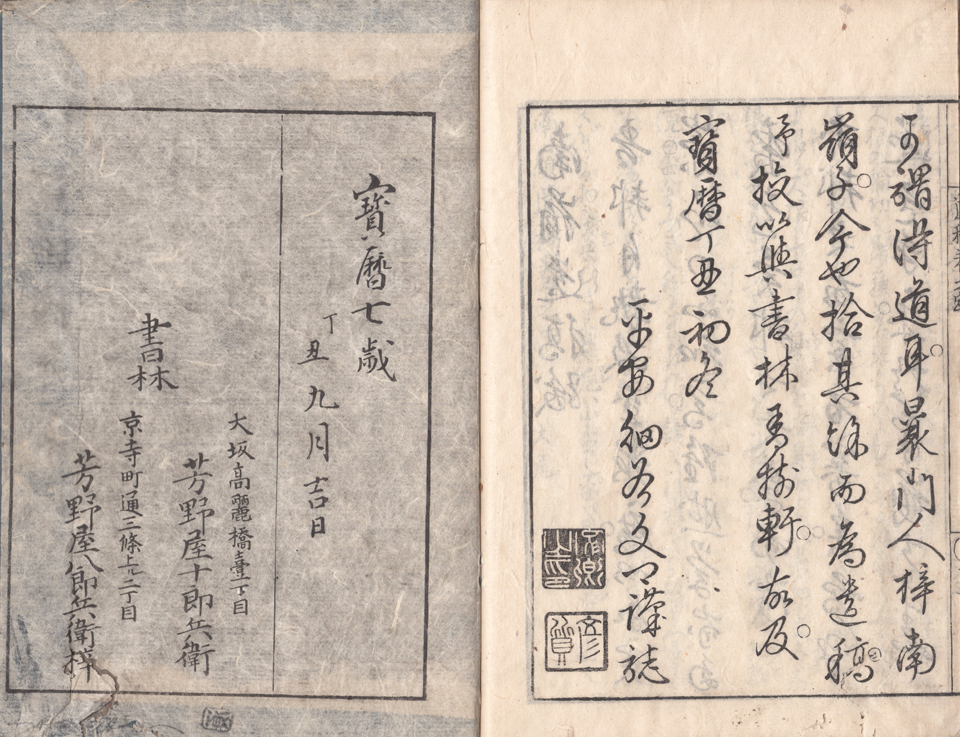 可謂得道耳曩門人梓南
嶺子今也拾其餘而為遺稿
予投以與書林青 軒故及
寶曆丁丑初冬
平安細谷文 謹誌
寶曆七歲
丁丑九月吉日
書林
大坂高麗橋壹丁目
芳野屋十郎兵衛
京寺町通三條上ル二丁目
芳野屋八郎兵衛梓